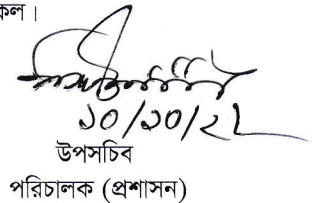 কল।
১০/১০/২২
উপসচিব
পরিচালক (প্রশাসন)